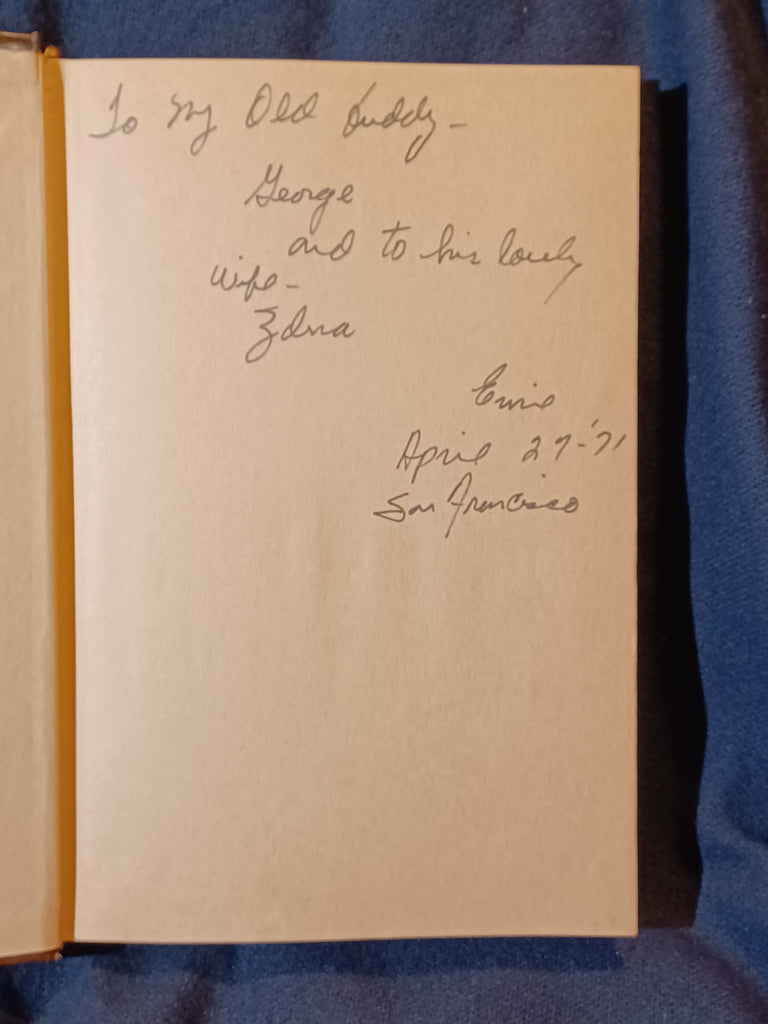 To My Old Buddy-
George
and to his lovely
Wife-
Edna
Ernie
April 27-'71
San Francisco